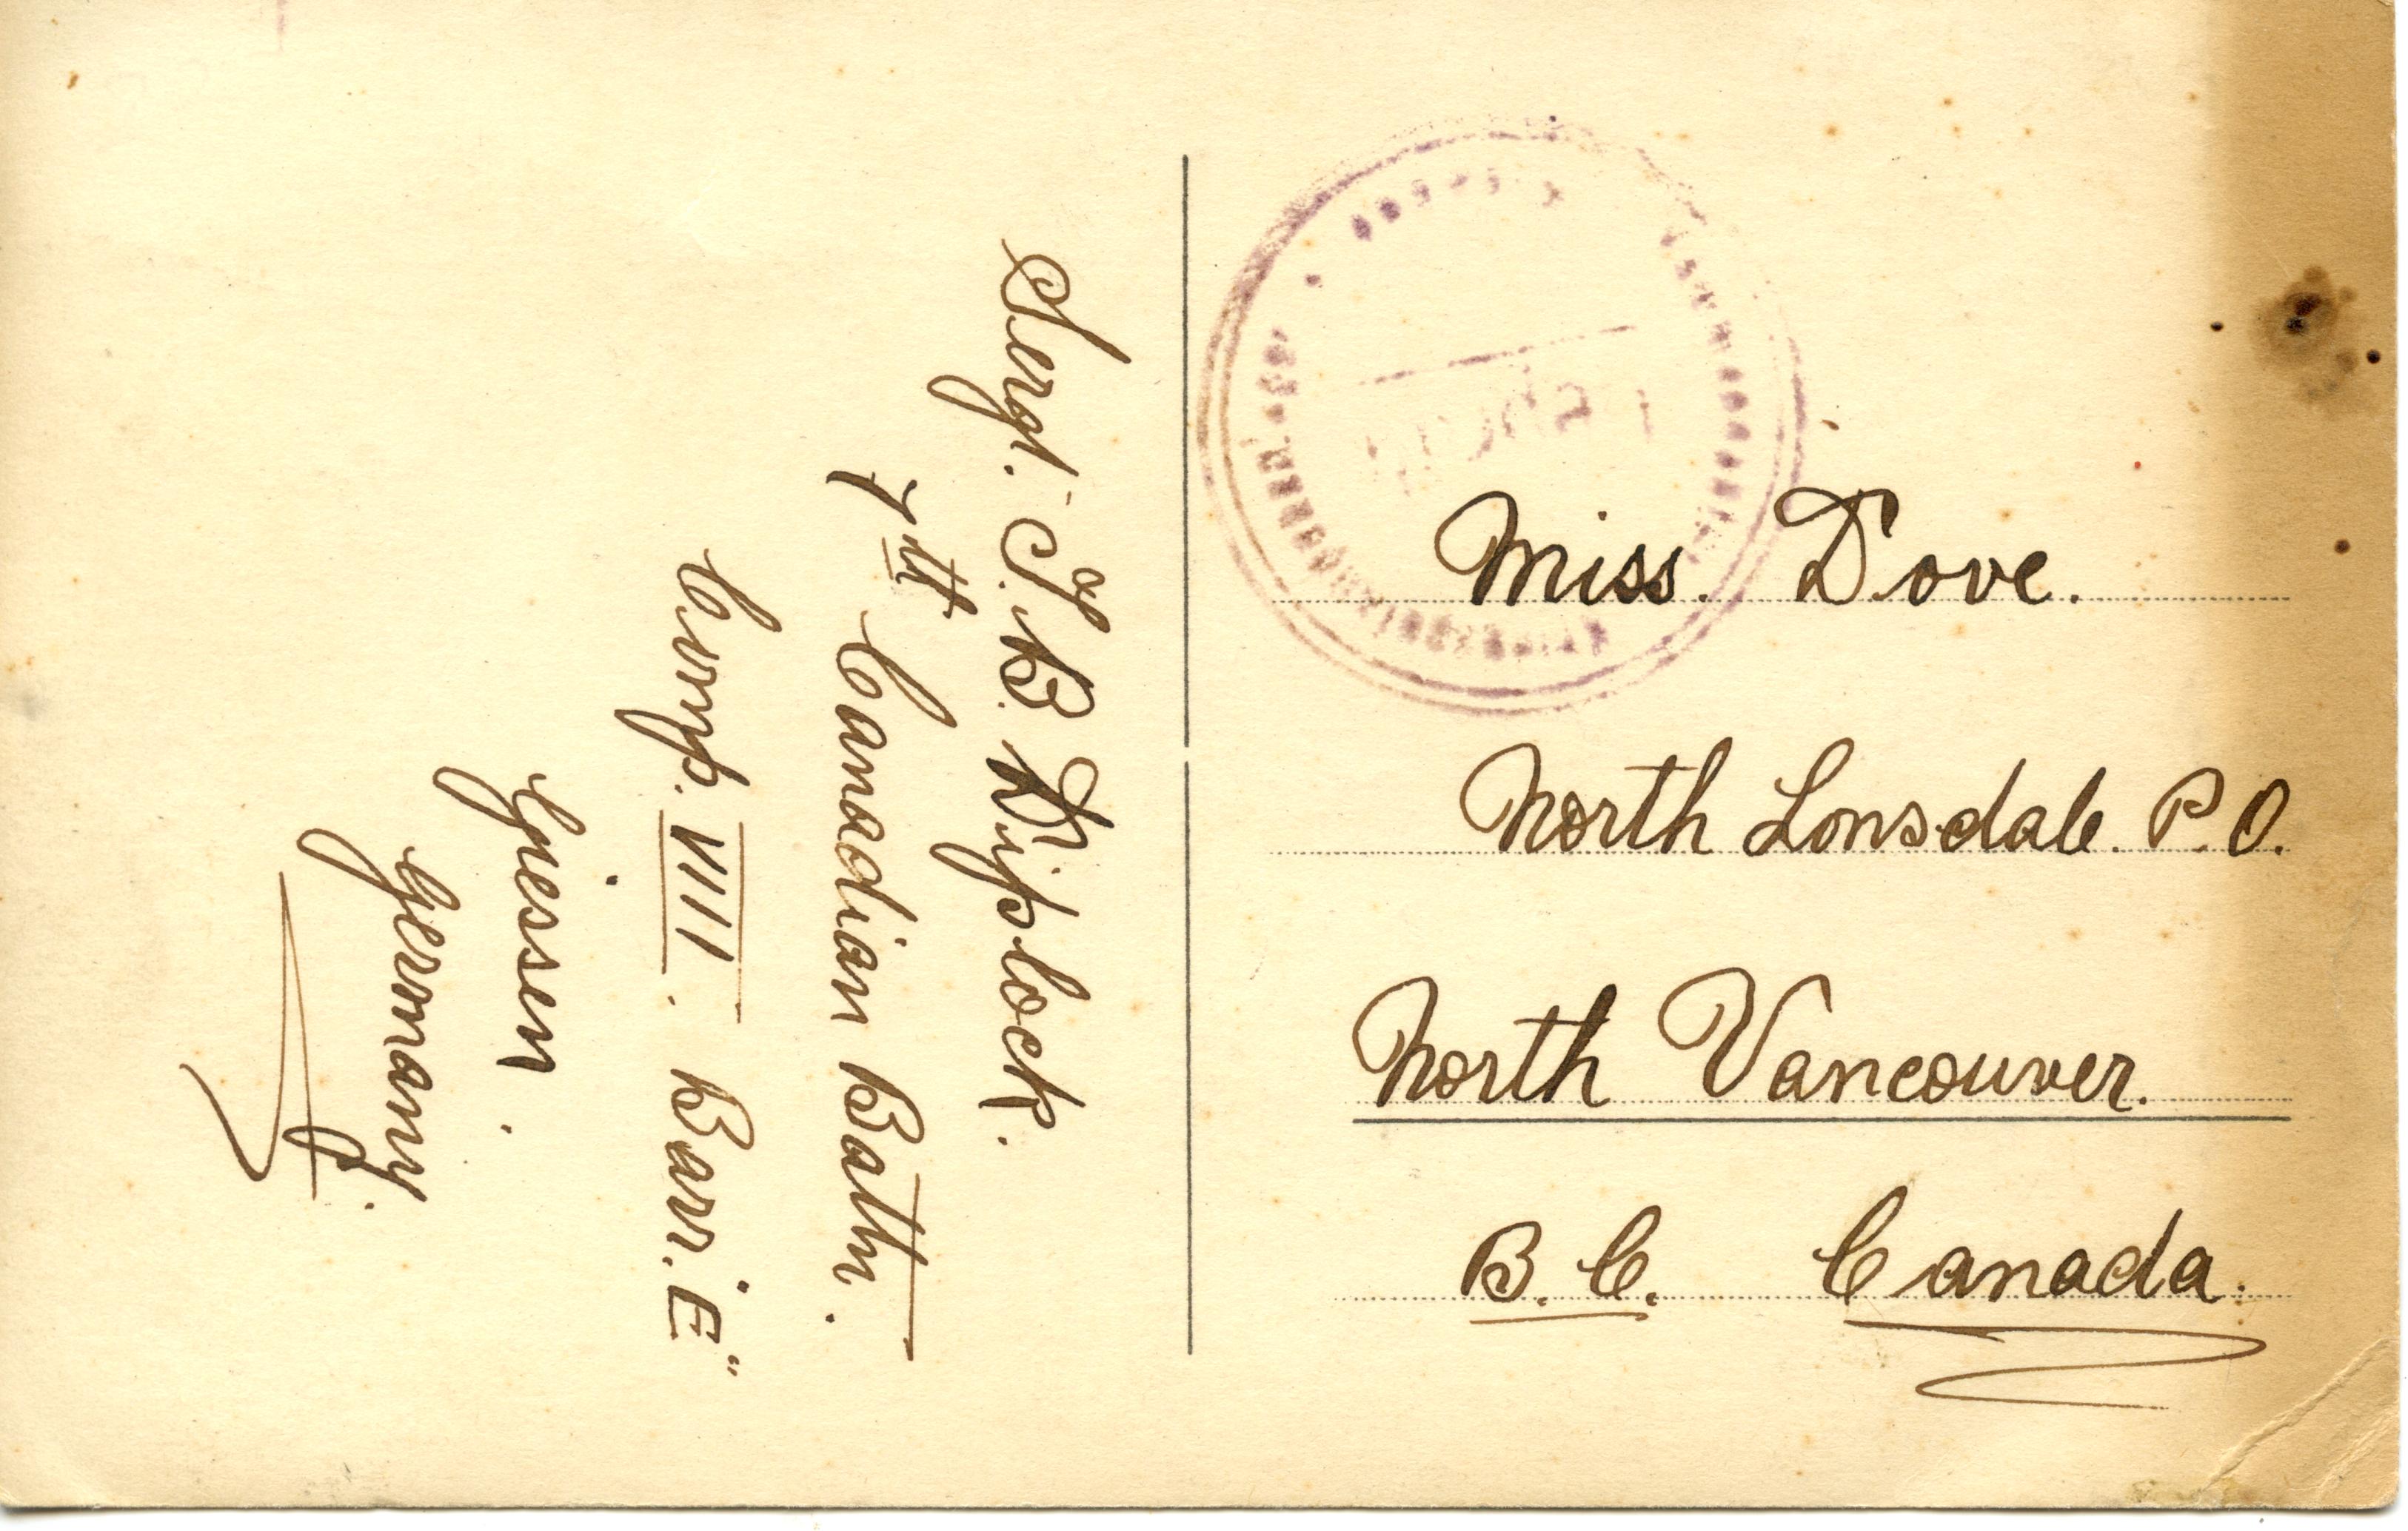 Sergt. S.B. Diplock.
7th Canadian Battn.
Comp. VIII. Barr. "E"
Giessen.
Germany.
Miss. Dove.
North Lonsdale. P.O.
North Vancouver.
B.C. Canada.